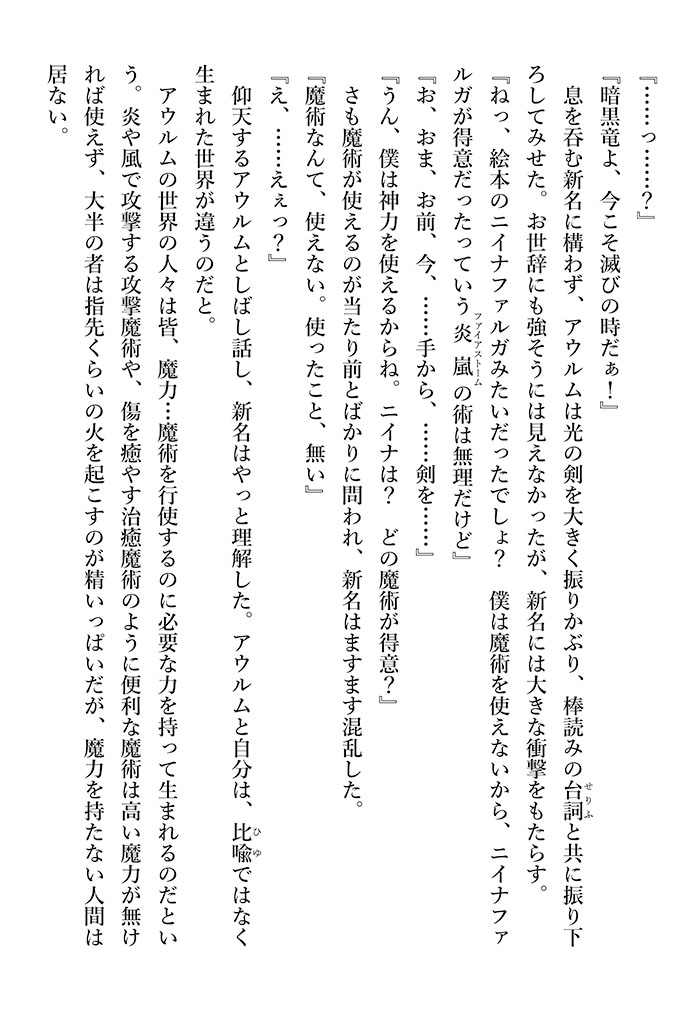 『……っ……？』
『暗黒竜よ、今こそ滅びの時だぁ！』
　息を呑む新名に構わず、アウルムは光の剣を大きく振りかぶり、棒読みの台詞と共に振り下
ろしてみせた。お世辞にも強そうには見えなかったが、新名には大きな衝撃をもたらす。
『ねっ、絵本のニイナファルガみたいだったでしょ？　僕は魔術を使えないから、ニイナファ
ルガが得意だったっていう炎嵐の術は無理だけど』
『お、おま、お前、今、……手から、……剣を……』
『うん、僕は神力を使えるからね。ニイナは？　どの魔術が得意？』
　さも魔術が使えるのが当たり前とばかりに問われ、新名はますます混乱した。
『魔術なんて、使えない。使ったこと、無い』
『え、……えぇっ？』
　仰天するアウルムとしばし話し、新名はやっと理解した。アウルムと自分は、比喩ではなく
生まれた世界が違うのだと。
　アウルムの世界の人々は皆、魔力…魔術を行使するのに必要な力を持って生まれるのだとい
う。炎や風で攻撃する攻撃魔術や、傷を癒やす治癒魔術のように便利な魔術は高い魔力が無け
れば使えず、大半の者は指先くらいの火を起こすのが精いっぱいだが、魔力を持たない人間は
居ない。
せりふ
ファイアストーム
ひゆ